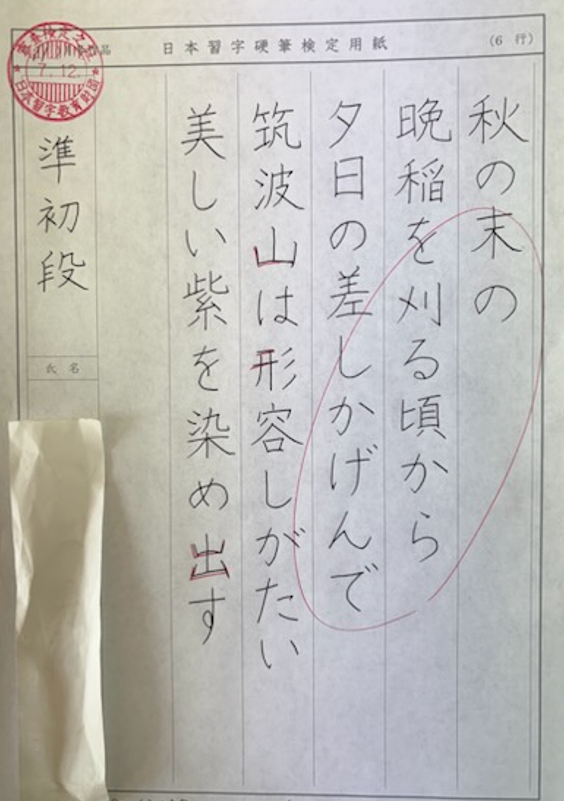 日本習字硬筆検定用紙
(6 行)
秋の末の
晩稲を刈る頃から
夕日の差しかげんで
筑波山は形容しがたい
美しい紫を染め出す
準初段
氏名
7.12.
日本習字教育財団